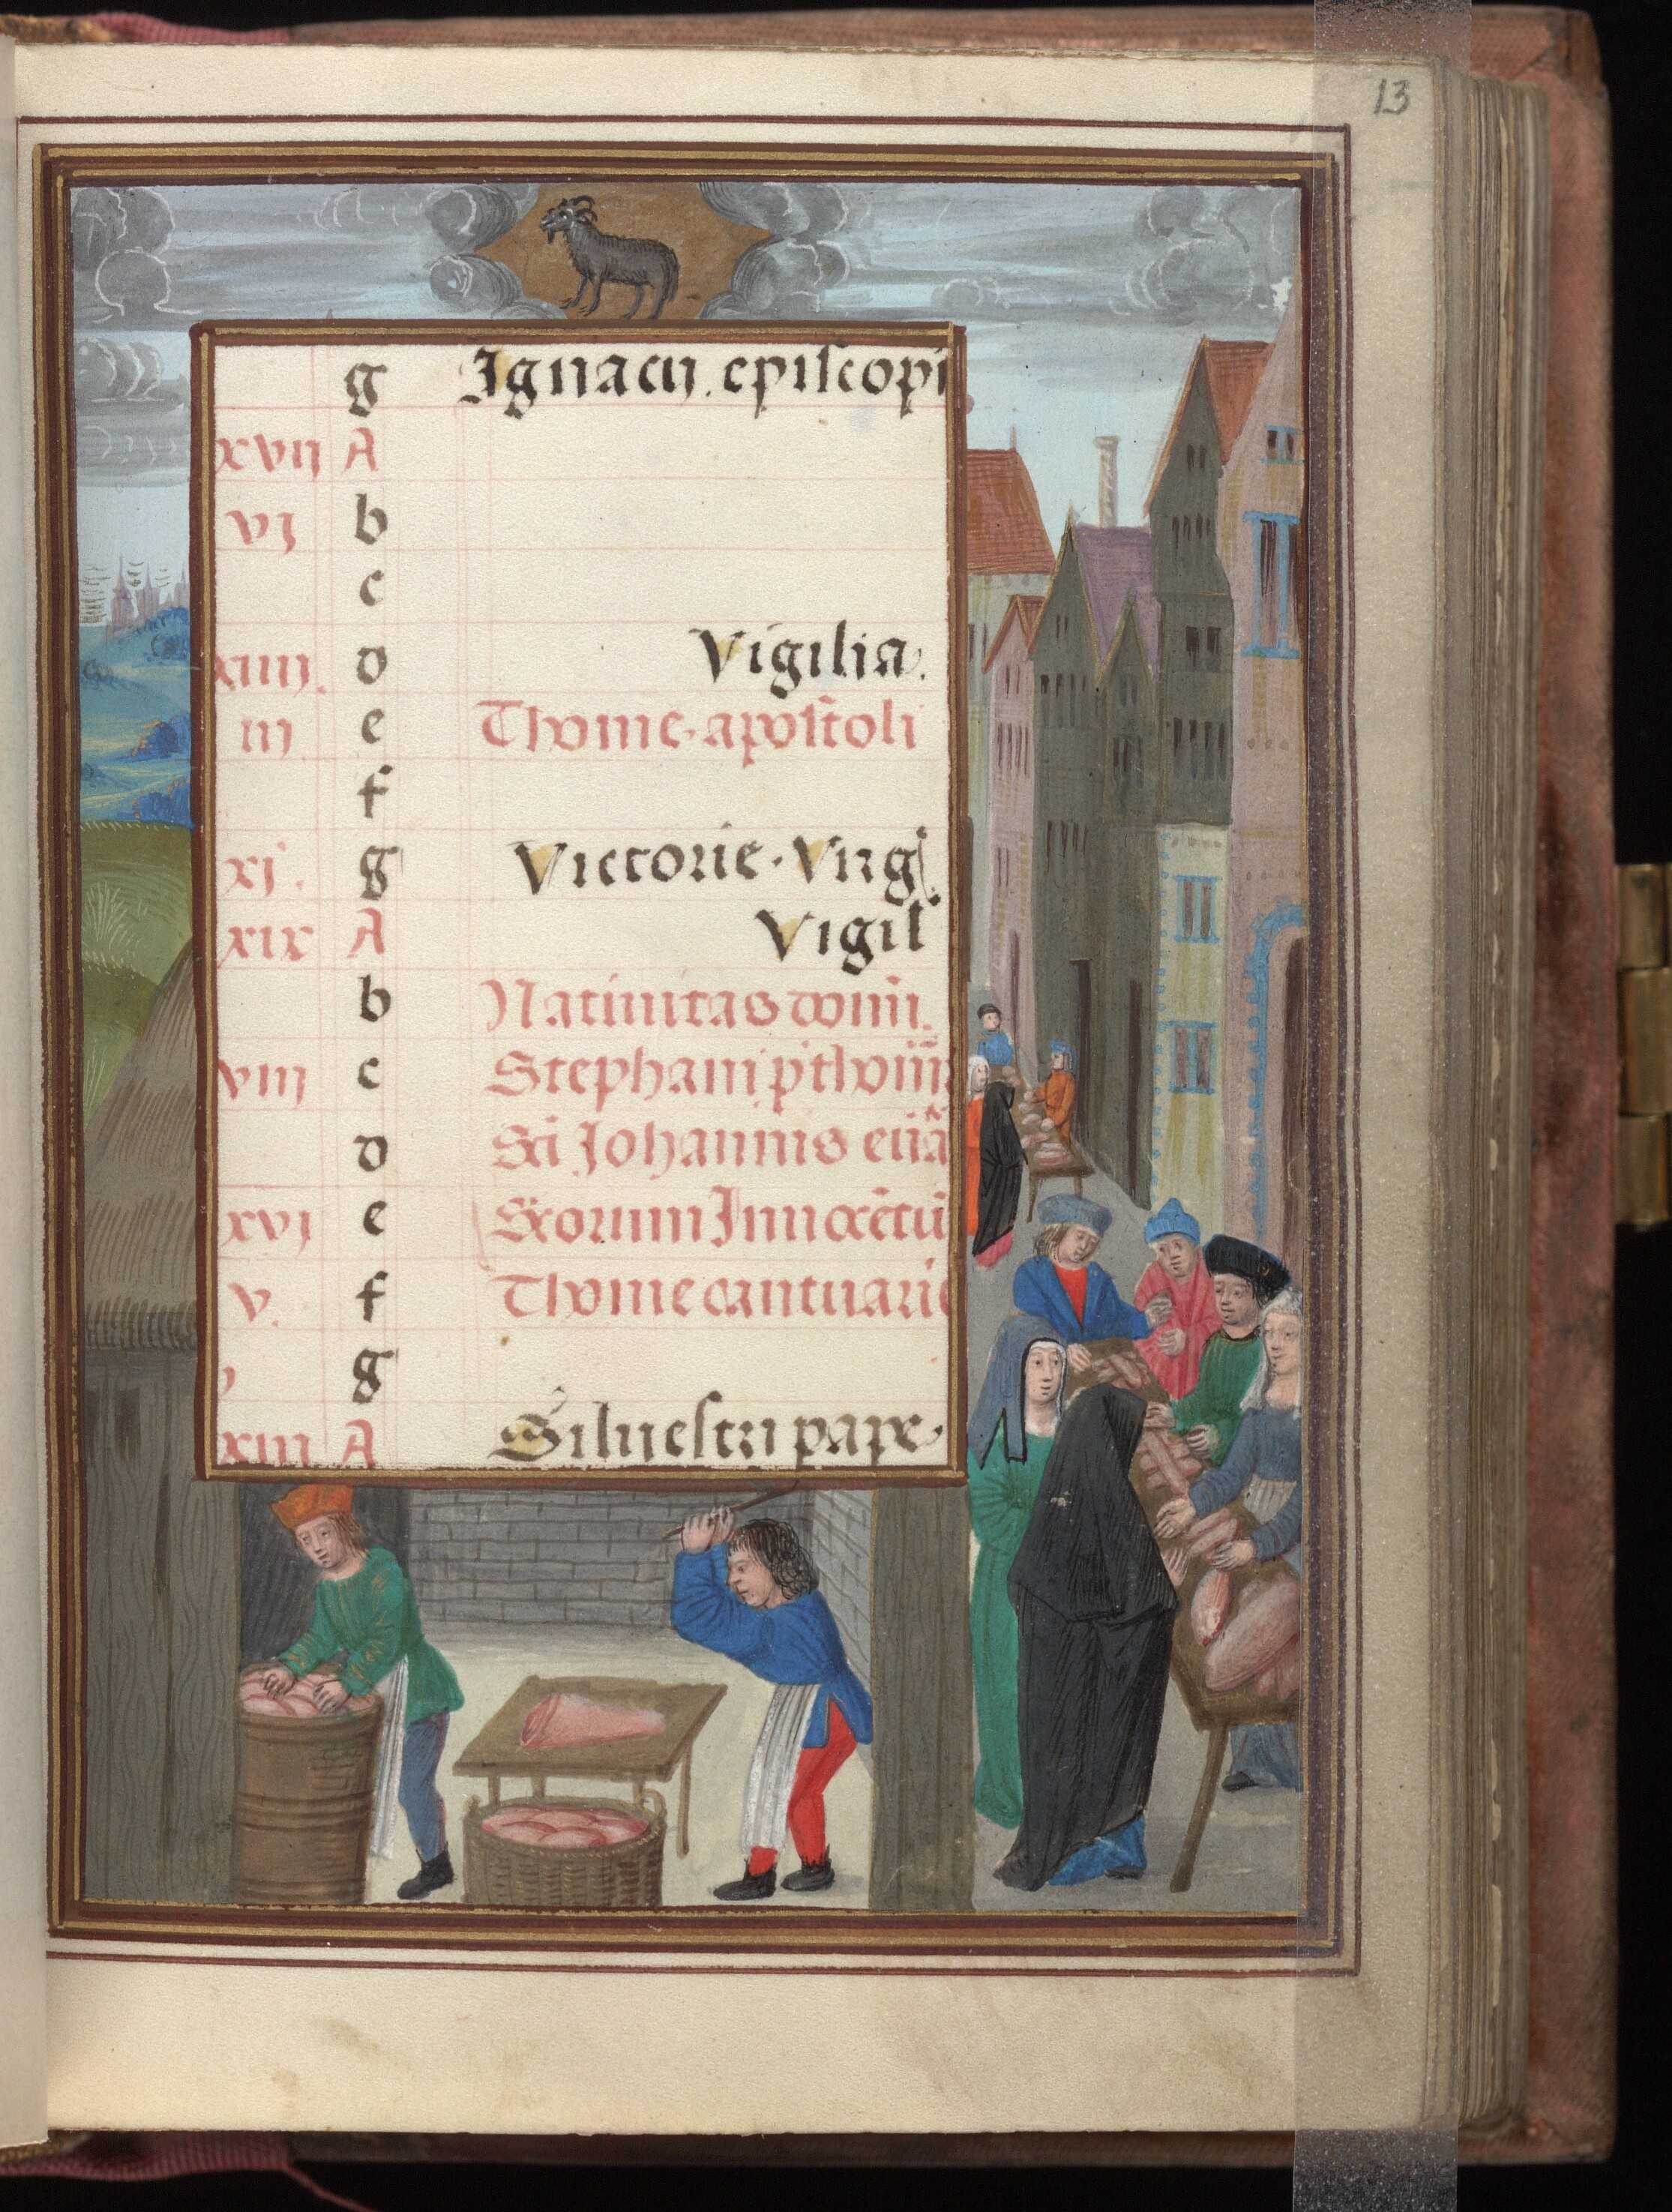 13
g Ignacij. episcopi
xvij A
vj b
c
xiiij. d Vigilia.
iij e Thome. apostoli
f
xj. g Victorie. Virg
xix A Vigil
b Natiuitas domi.
viij c Stephani p̄thom̄
d Sci Johannis euā
xvj e Scōrum Innocētū
v. f Thome cantuarie
g
xiij A Siluestri pape.